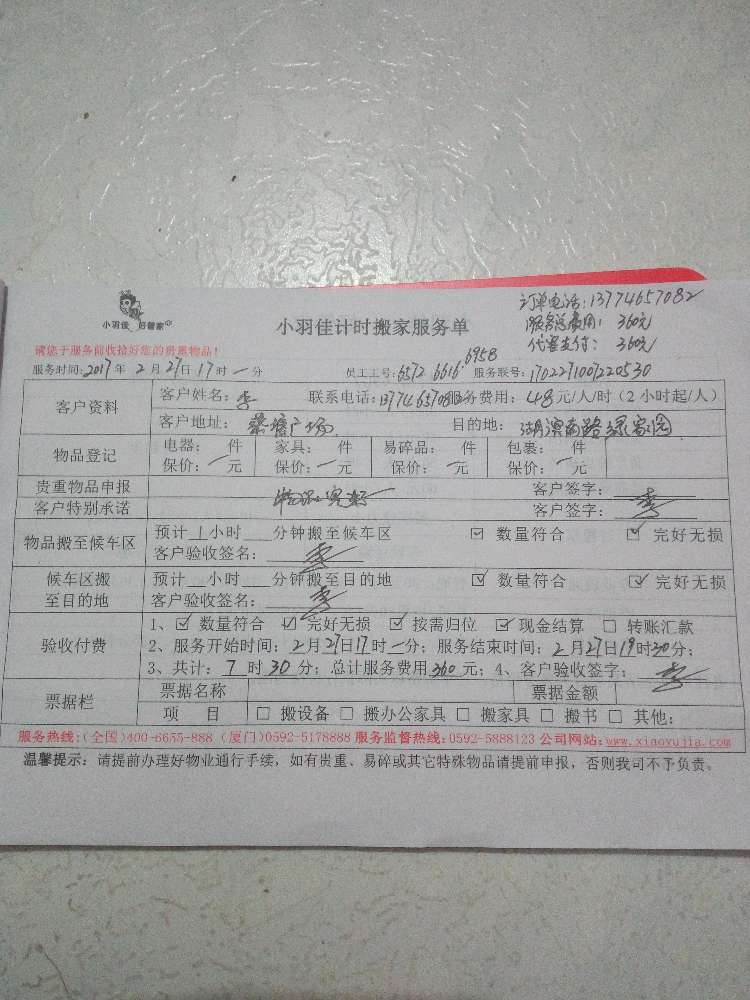 小羽佳 好管家
小羽佳计时搬家服务单
订单电话:13774657082
服务总费用: 360元
代客支付: 360元
请您于服务前收拾好您的贵重物品!
服务时间:2017年2月27日17时一分 员工工号:6572 6616 6958 服务联号:170227100220530
客户资料
客户姓名:李 联系电话:13774657082服务费用:48元/人/时(2小时起/人)
客户地址:蔡塘广场 目的地:湖滨南路绿家园
物品登记
电器: 件 家具: 件 易碎品: 件 包裹: 件
保价:一元 保价:一元 保价:一元 保价:一元
贵重物品申报 客户签字:
客户特别承诺 客户签字:李
物品搬至候车区
预计1小时 分钟搬至候车区 ☑ 数量符合 ☑ 完好无损
客户验收签名:李
候车区搬至目的地
预计 小时 分钟搬至目的地 ☑ 数量符合 ☑ 完好无损
客户验收签名:李
验收付费
1、☑ 数量符合 ☑ 完好无损 ☑ 按需归位 ☑ 现金结算 □ 转账汇款
2、服务开始时间:2月27日17时一分;服务结束时间:2月27日19时30分;
3、共计:7时30分;总计服务费用360元;4、客户验收签字:李
票据栏
票据名称 票据金额
项 目 □ 搬设备 □ 搬办公家具 □ 搬家具 □ 搬书 □ 其他:
服务热线:(全国)400-6655-888 (厦门)0592-5178888 服务监督热线:0592-5888123 公司网站:www.xiaoyujia.com
温馨提示:请提前办理好物业通行手续,如有贵重、易碎或其它特殊物品请提前申报,否则我司不予负责。